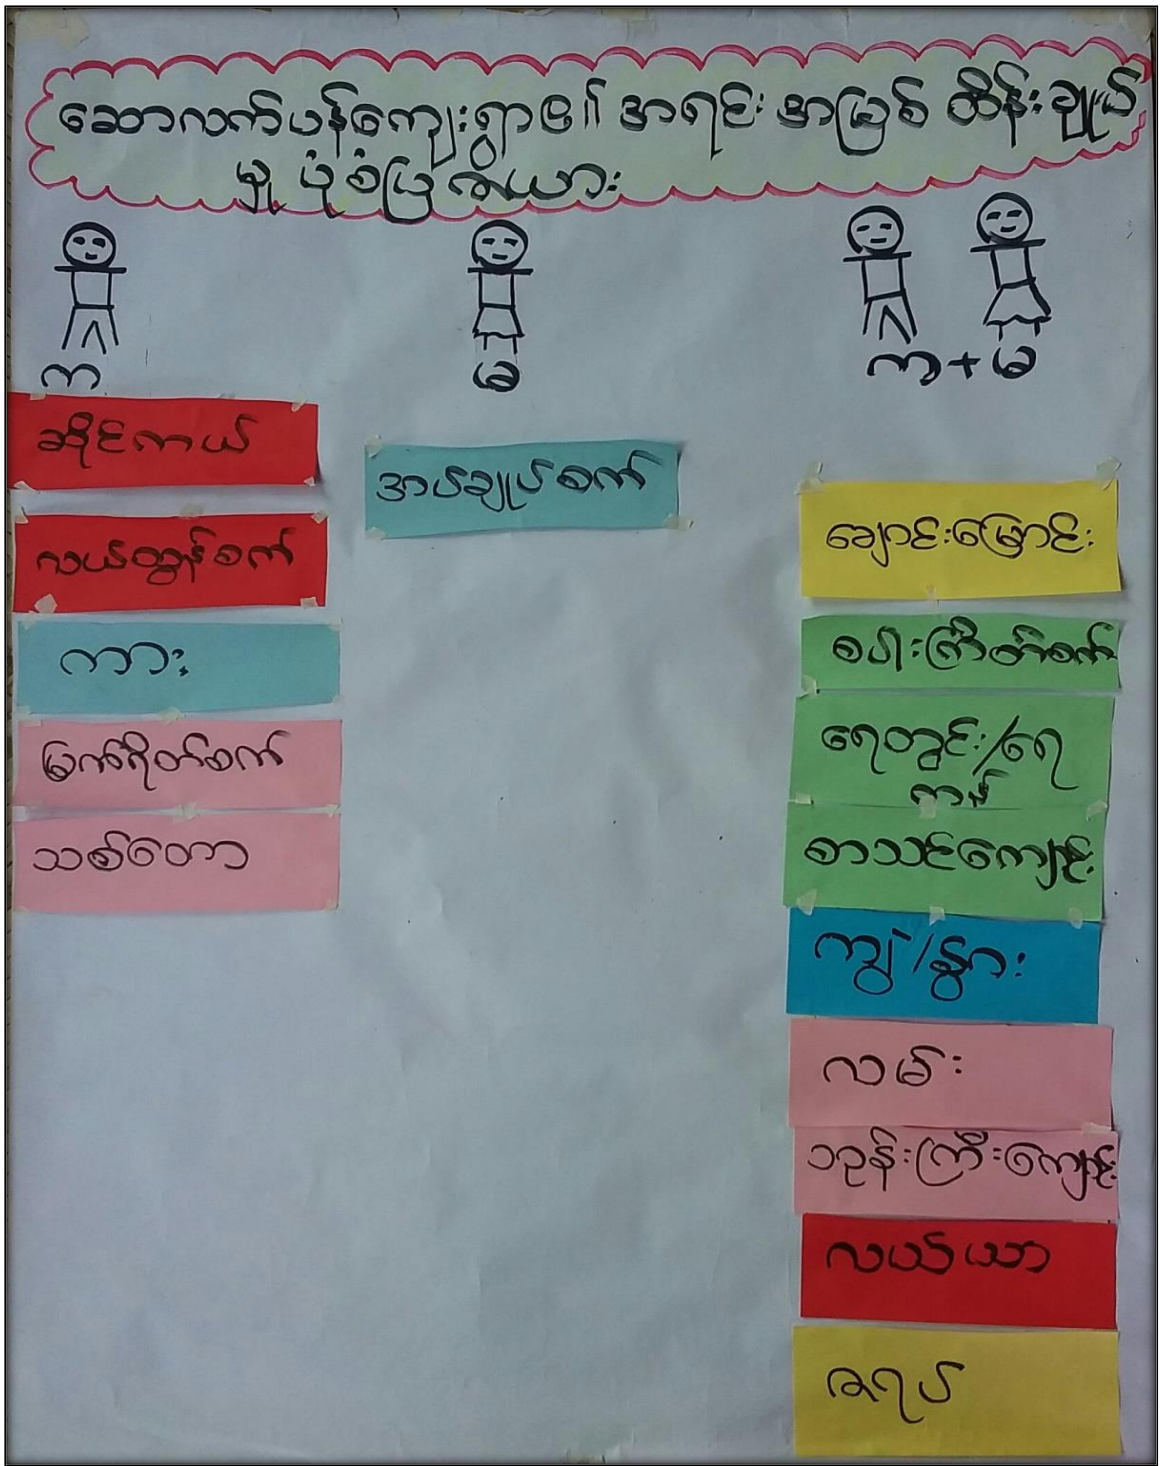 ဆောလက်ပန်ကျေးရွာ၏ အရင်း အမြစ် ထိန်းချုပ်
မှု ပုံစံပြ ဇယား
က
မ
က + မ
ဆိုင်ကယ်
လယ်ထွန်စက်
ကား
မြက်ရိတ်စက်
သစ်တော
အပ်ချုပ်စက်
ချောင်းမြောင်း
စပါးကြိတ်စက်
ရေတွင်း/ရေ
ကန်
စာသင်ကျောင်း
ကျွဲ/နွား
လမ်း
ဘုန်းကြီးကျောင်း
လယ်ယာ
ဇရပ်